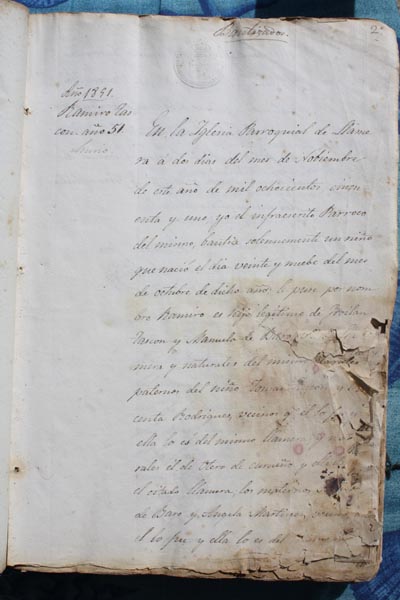 2
Año 1851.
Ramiro Tas
con año 51.
En la Yglesia Parroquial de Llame
ra á dos dias del mes de Nobiembre
de este año de mil ochocientos cincu
enta y uno, yo el infraescrito Parroco
del mismo, bautize solenemente un niño
que nació el dia veinte y nuebe del mes
de octubre de dicho año, le puse por nom
bre Ramiro es hijo legitimo de Froilan
Tascon y Manuela de Baro
mera y naturales del mismo
paternos del niño Tomas
enta Rodriguez, vecinos q.e el lo fue y
ella lo es del mismo Llamera y natu
rales él de Otero de curueño y ella
el citado Llamera, los maternos
de Baro y Angela Martinez, vecinos
él lo fue y ella lo es del